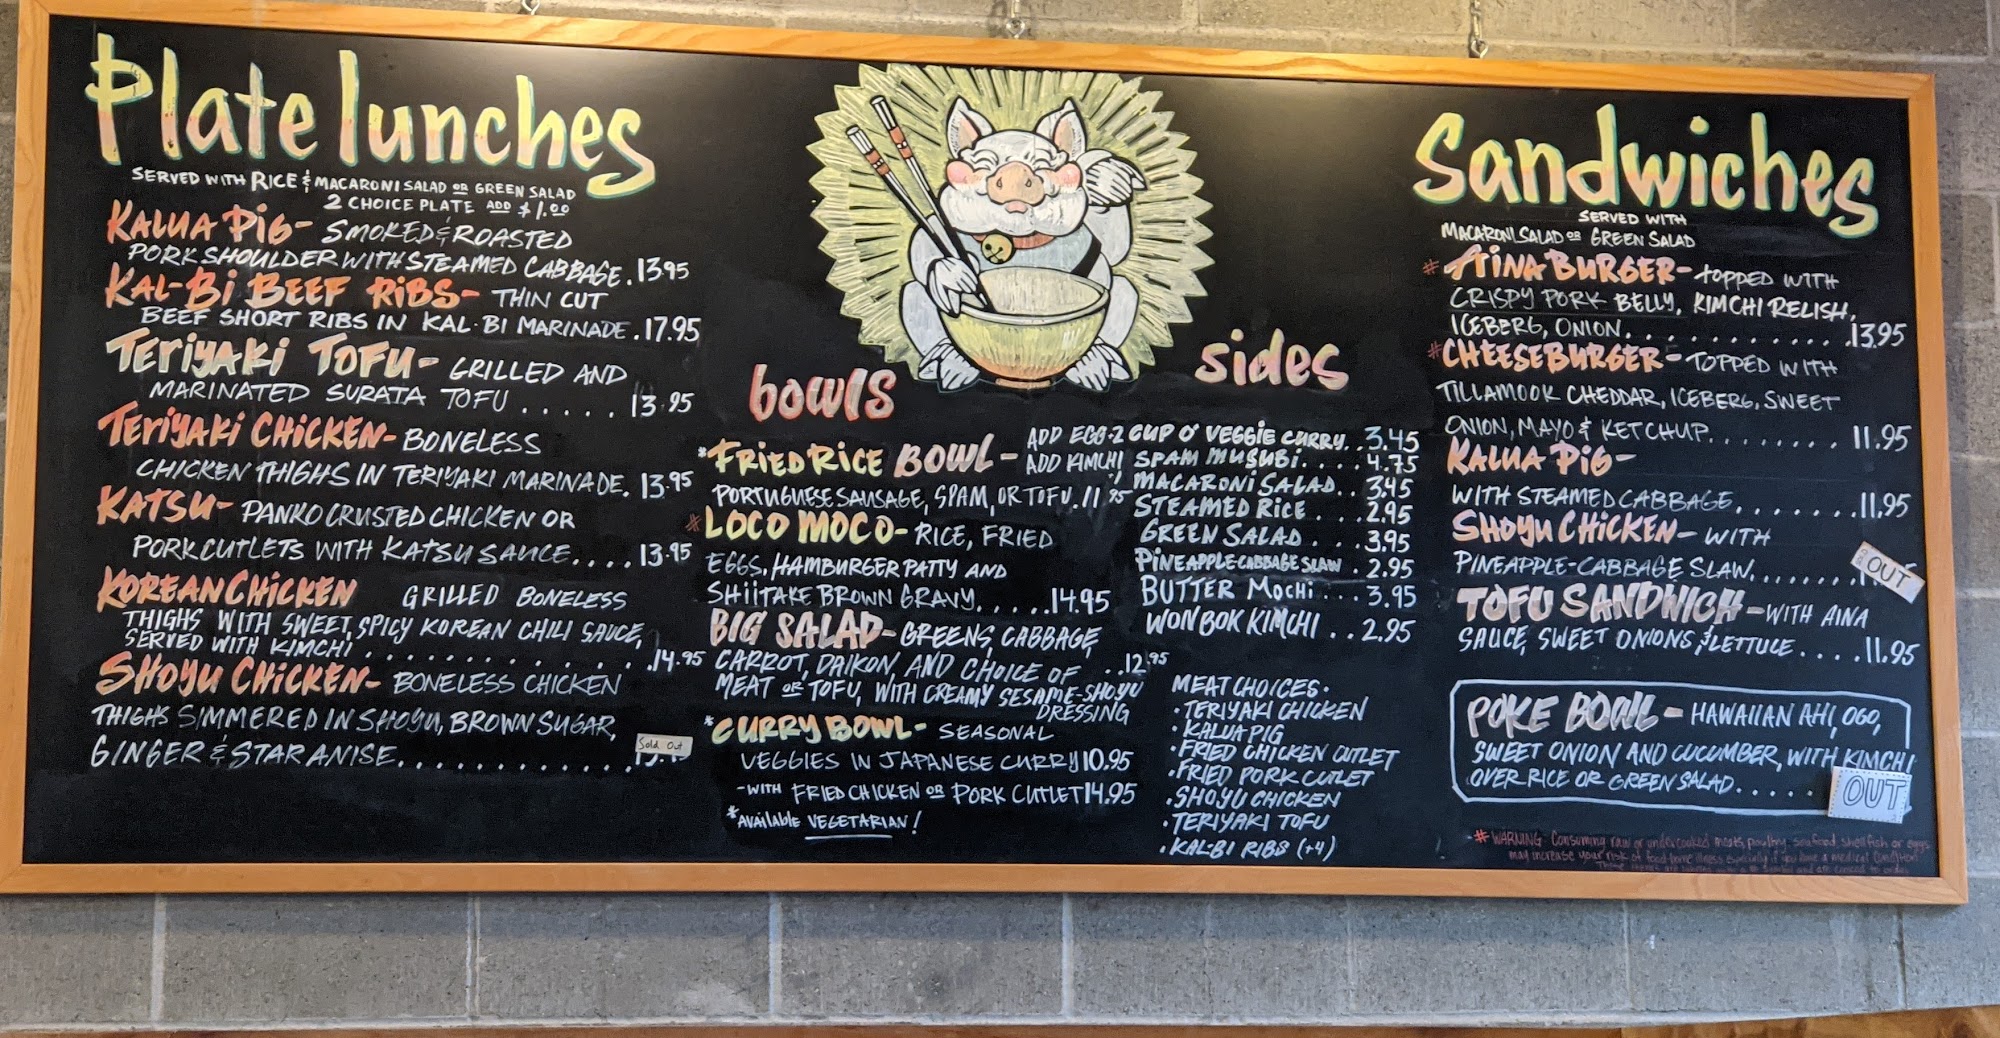 Plate lunches
SERVED WITH RICE & MACARONI SALAD OR GREEN SALAD
2 CHOICE PLATE ADD $1.00
KALUA PIG- SMOKED & ROASTED
PORK SHOULDER WITH STEAMED CABBAGE. 13.95
KAL-BI BEEF RIBS- THIN CUT
BEEF SHORT RIBS IN KAL-BI MARINADE. 17.95
TERIYAKI TOFU- GRILLED AND
MARINATED SURATA TOFU ..... 13.95
TERIYAKI CHICKEN- BONELESS
CHICKEN THIGHS IN TERIYAKI MARINADE. 13.95
KATSU- PANKO CRUSTED CHICKEN OR
PORK CUTLETS WITH KATSU SAUCE.... 13.95
KOREAN CHICKEN GRILLED BONELESS
THIGHS WITH SWEET, SPICY KOREAN CHILI SAUCE,
SERVED WITH KIMCHI .............. 14.95
SHOYU CHICKEN- BONELESS CHICKEN
THIGHS SIMMERED IN SHOYU, BROWN SUGAR,
GINGER & STAR ANISE.............
Sold Out
bowls
*FRIED RICE BOWL- ADD EGG-2
ADD KIMCHI
PORTUGUESE SAUSAGE, SPAM, OR TOFU. 11.95
#LOCO MOCO- RICE, FRIED
EGGS, HAMBURGER PATTY AND
SHIITAKE BROWN GRAVY.....14.95
BIG SALAD- GREENS, CABBAGE,
CARROT, DAIKON, AND CHOICE OF ..12.95
MEAT OR TOFU, WITH CREAMY SESAME-SHOYU
DRESSING
*CURRY BOWL- SEASONAL
VEGGIES IN JAPANESE CURRY 10.95
-WITH FRIED CHICKEN OR PORK CUTLET 14.95
*AVAILABLE VEGETARIAN!
sides
CUP O' VEGGIE CURRY.. 3.45
SPAM MUSUBI.... 4.75
MACARONI SALAD.. 3.45
STEAMED RICE ... 2.95
GREEN SALAD ... 3.95
PINEAPPLE-CABBAGE SLAW . 2.95
BUTTER MOCHI... 3.95
WON BOK KIMCHI .. 2.95
MEAT CHOICES.
•TERIYAKI CHICKEN
•KALUA PIG
•FRIED CHICKEN CUTLET
•FRIED PORK CUTLET
•SHOYU CHICKEN
•TERIYAKI TOFU
•KAL-BI RIBS (+4)
Sandwiches
SERVED WITH
MACARONI SALAD OR GREEN SALAD
#AINA BURGER- TOPPED WITH
CRISPY PORK BELLY, KIMCHI RELISH,
ICEBERG, ONION...........13.95
#CHEESEBURGER- TOPPED WITH
TILLAMOOK CHEDDAR, ICEBERG, SWEET
ONION, MAYO & KETCHUP........ 11.95
KALUA PIG-
WITH STEAMED CABBAGE.......11.95
SHOYU CHICKEN- WITH
PINEAPPLE-CABBAGE SLAW.......
OUT
TOFU SANDWICH- WITH AINA
SAUCE, SWEET ONIONS, & LETTUCE....11.95
POKE BOWL- HAWAIIAN AHI, OGO,
SWEET ONION AND CUCUMBER, WITH KIMCHI
OVER RICE OR GREEN SALAD.....
OUT
# WARNING- Consuming raw or undercooked meats, poultry, seafood shellfish or eggs
may increase your risk of food borne illness especially if you have a medical condition